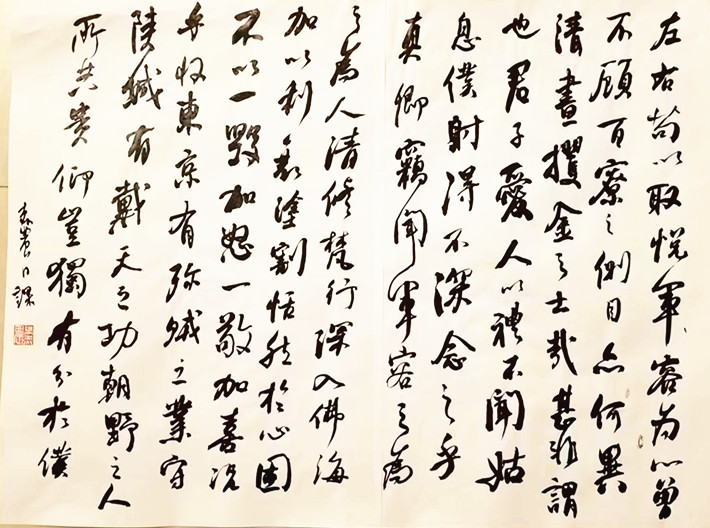 左右苟以取悅軍容為心曾
不顧百寮之側目亦何異
清晝攫金之士哉甚非謂
也君子愛人以禮不聞姑
息僕射得不深念之乎
真卿竊聞軍容之為
之為人清修梵行深入佛海
加以利衰塗割恬然於心固
不以一毀加怒一敬加喜況
乎收東京有殄賊之業守
陝城有戴天之功朝野之人
所共貴仰豈獨有分於僕
農日課